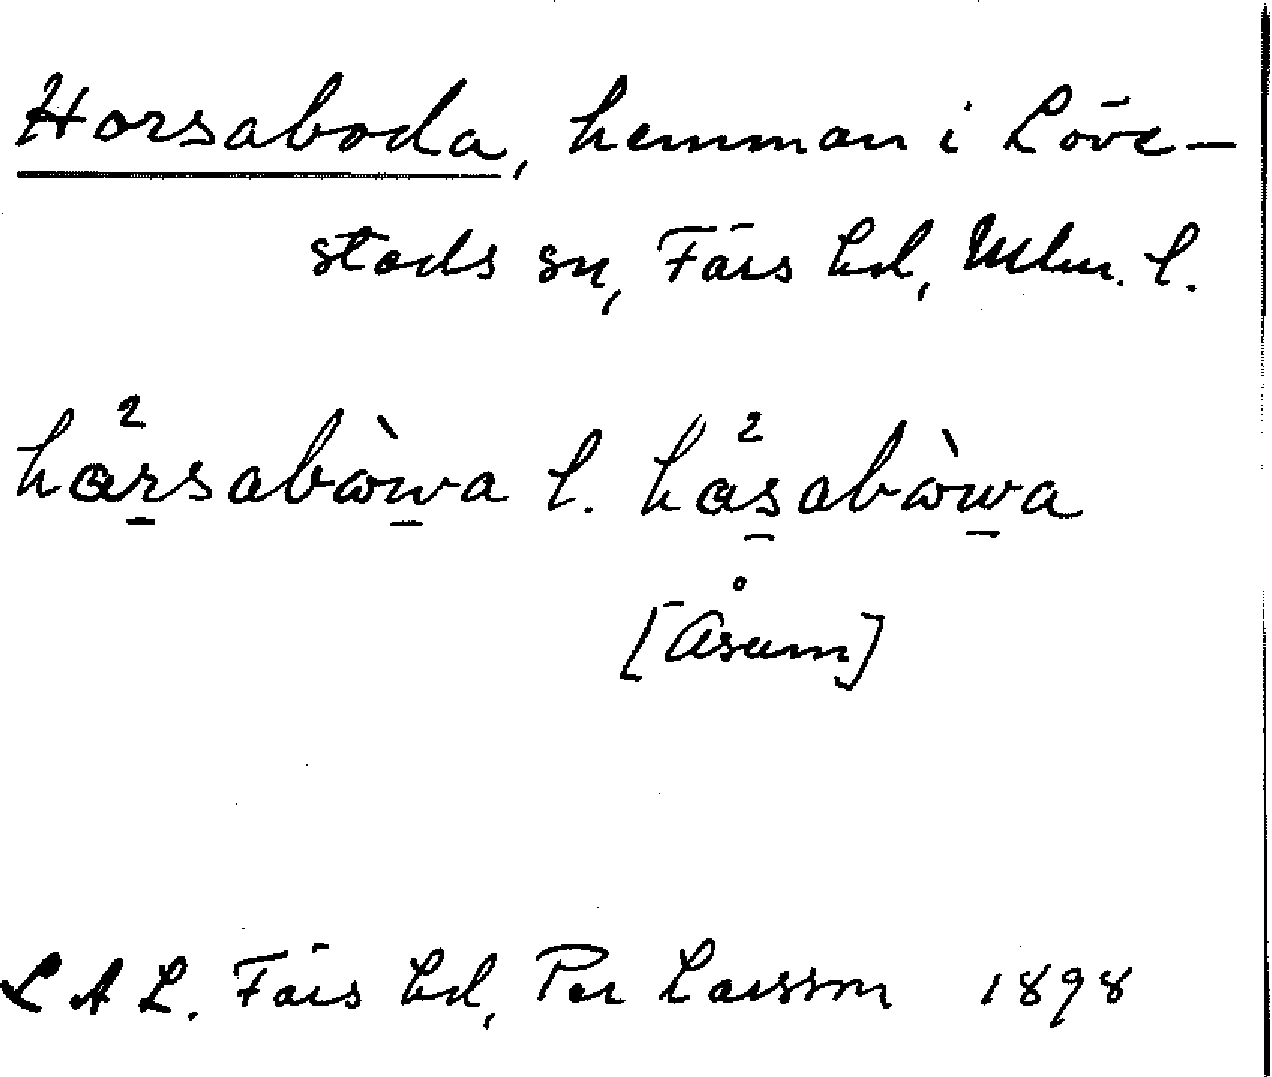 Horsaboda, hemman i Löve-
stads sn, Färs hd, Mlm. l.
hársabὼwa l. hásabὼwa
[Åsum]
LAL. Färs hd, Per Larsson 1898